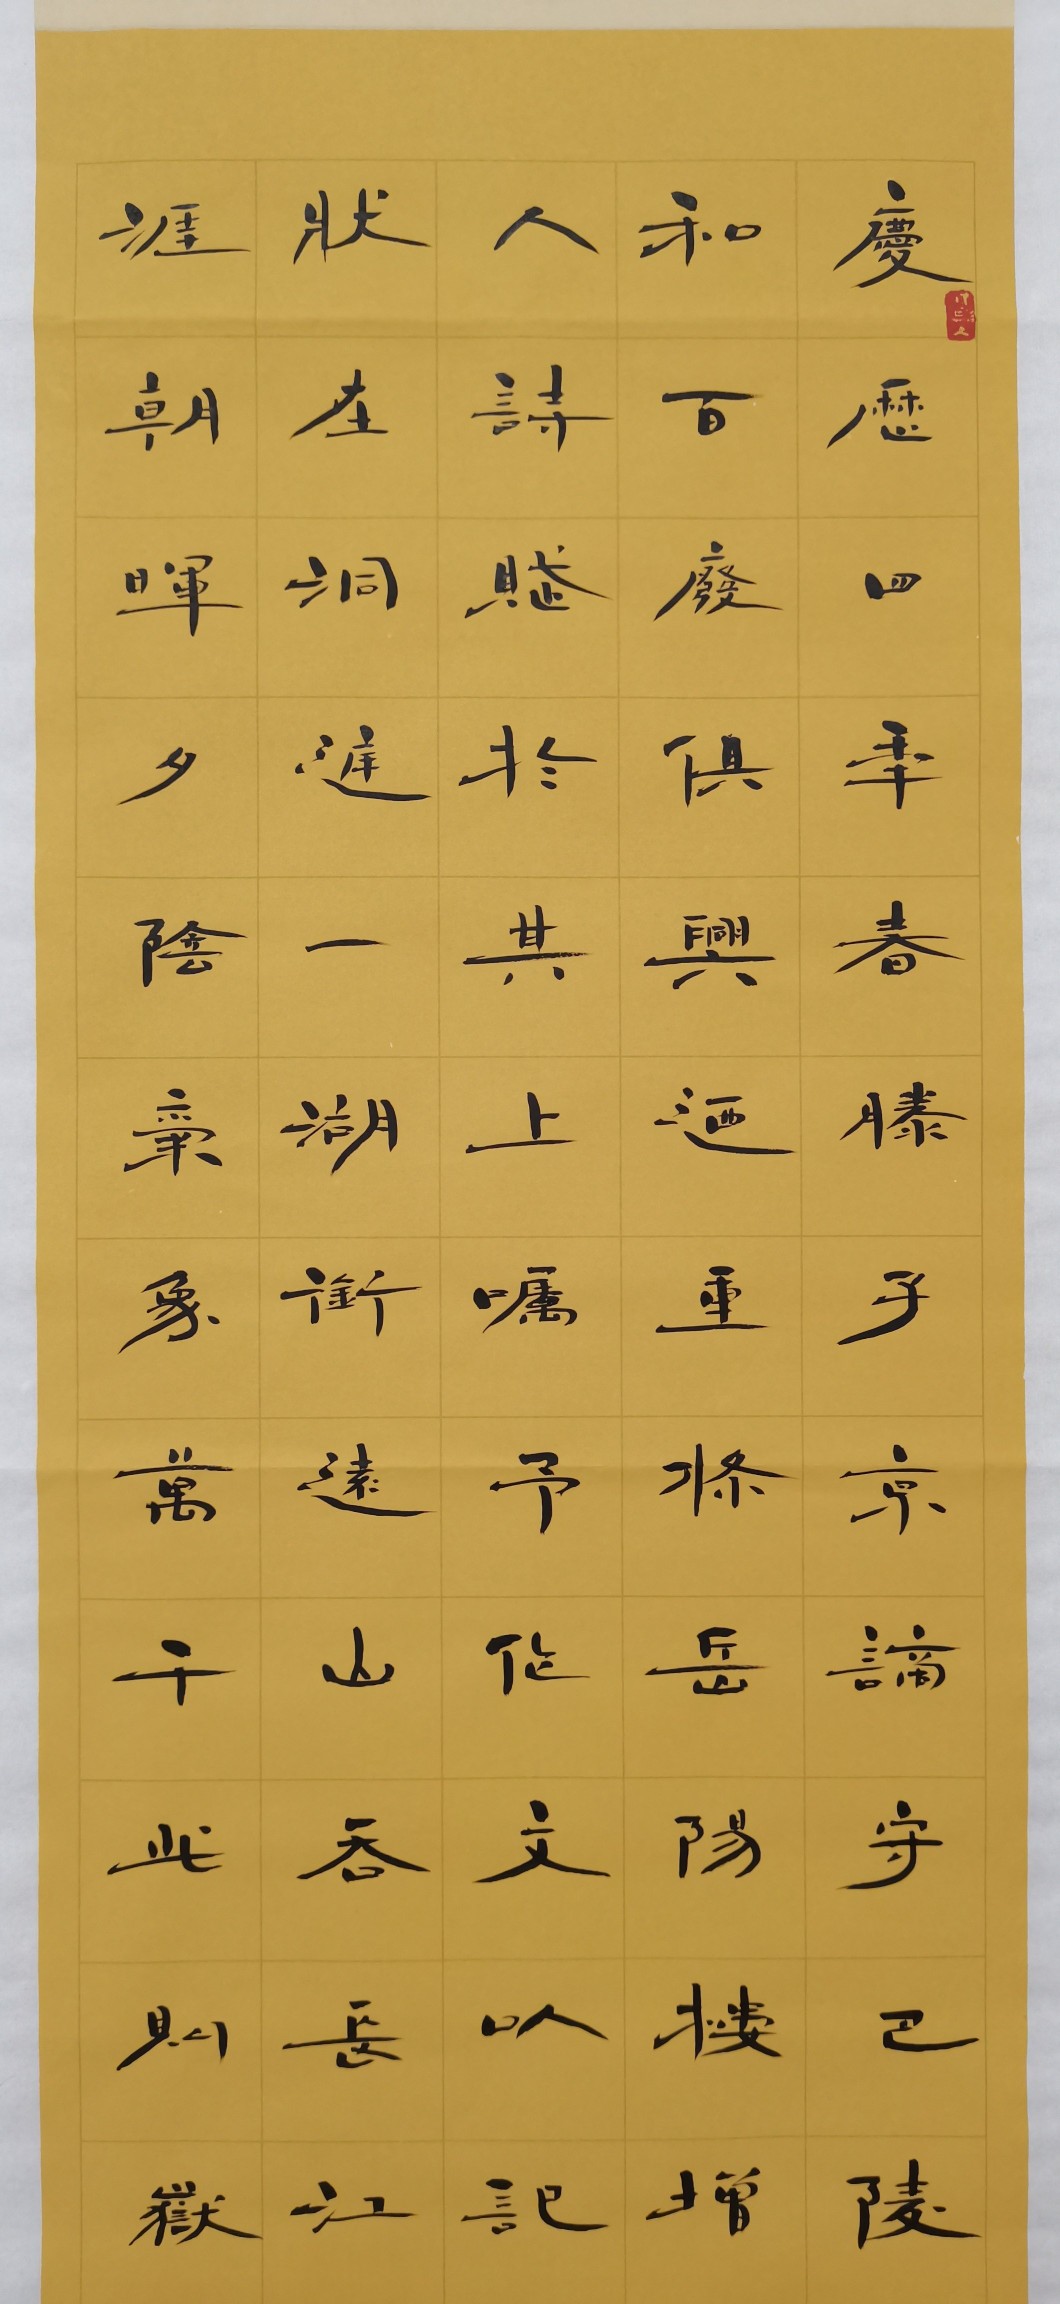 慶歷四年春滕子京謫守巴陵
和百廢俱興迺重修岳陽樓增
人詩賦於其上囑予作文以記
狀在洞庭一湖銜遠山吞長江
涯朝暉夕陰氣象萬千此則嶽